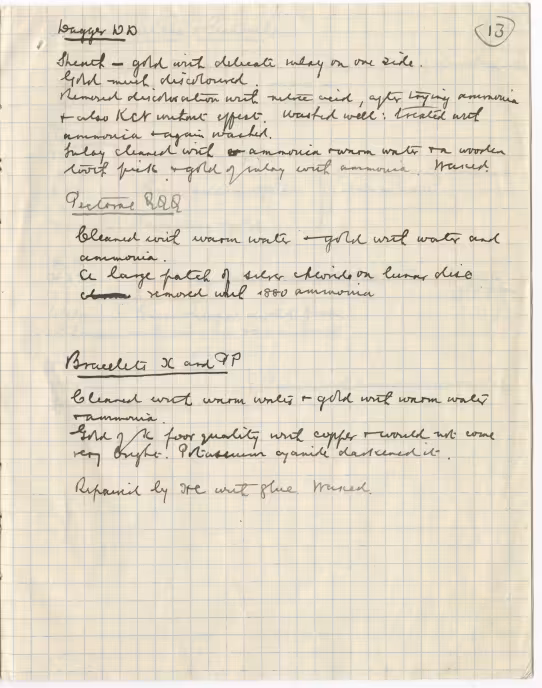 13
Dagger DD
Sheath – gold with delicate inlay on one side.
Gold much discoloured.
Removed discoloration with nitric acid, after trying ammonia
+ also KCN without effect. Washed well: treated with
ammonia + again washed.
Inlay cleaned with ammonia + warm water + a wooden
tooth pick + gold of inlay with ammonia. Waxed.
Pectoral QQQ
Cleaned with warm water + gold with water and
ammonia.
A large patch of silver chloride on lunar disc
removed with .880 ammonia
Bracelets X and PP
Cleaned with warm water + gold with warm water
+ ammonia.
Gold of X poor quality with copper + would not come
very bright. Potassium cyanide darkened it.
Repaired by HC with glue. Waxed.